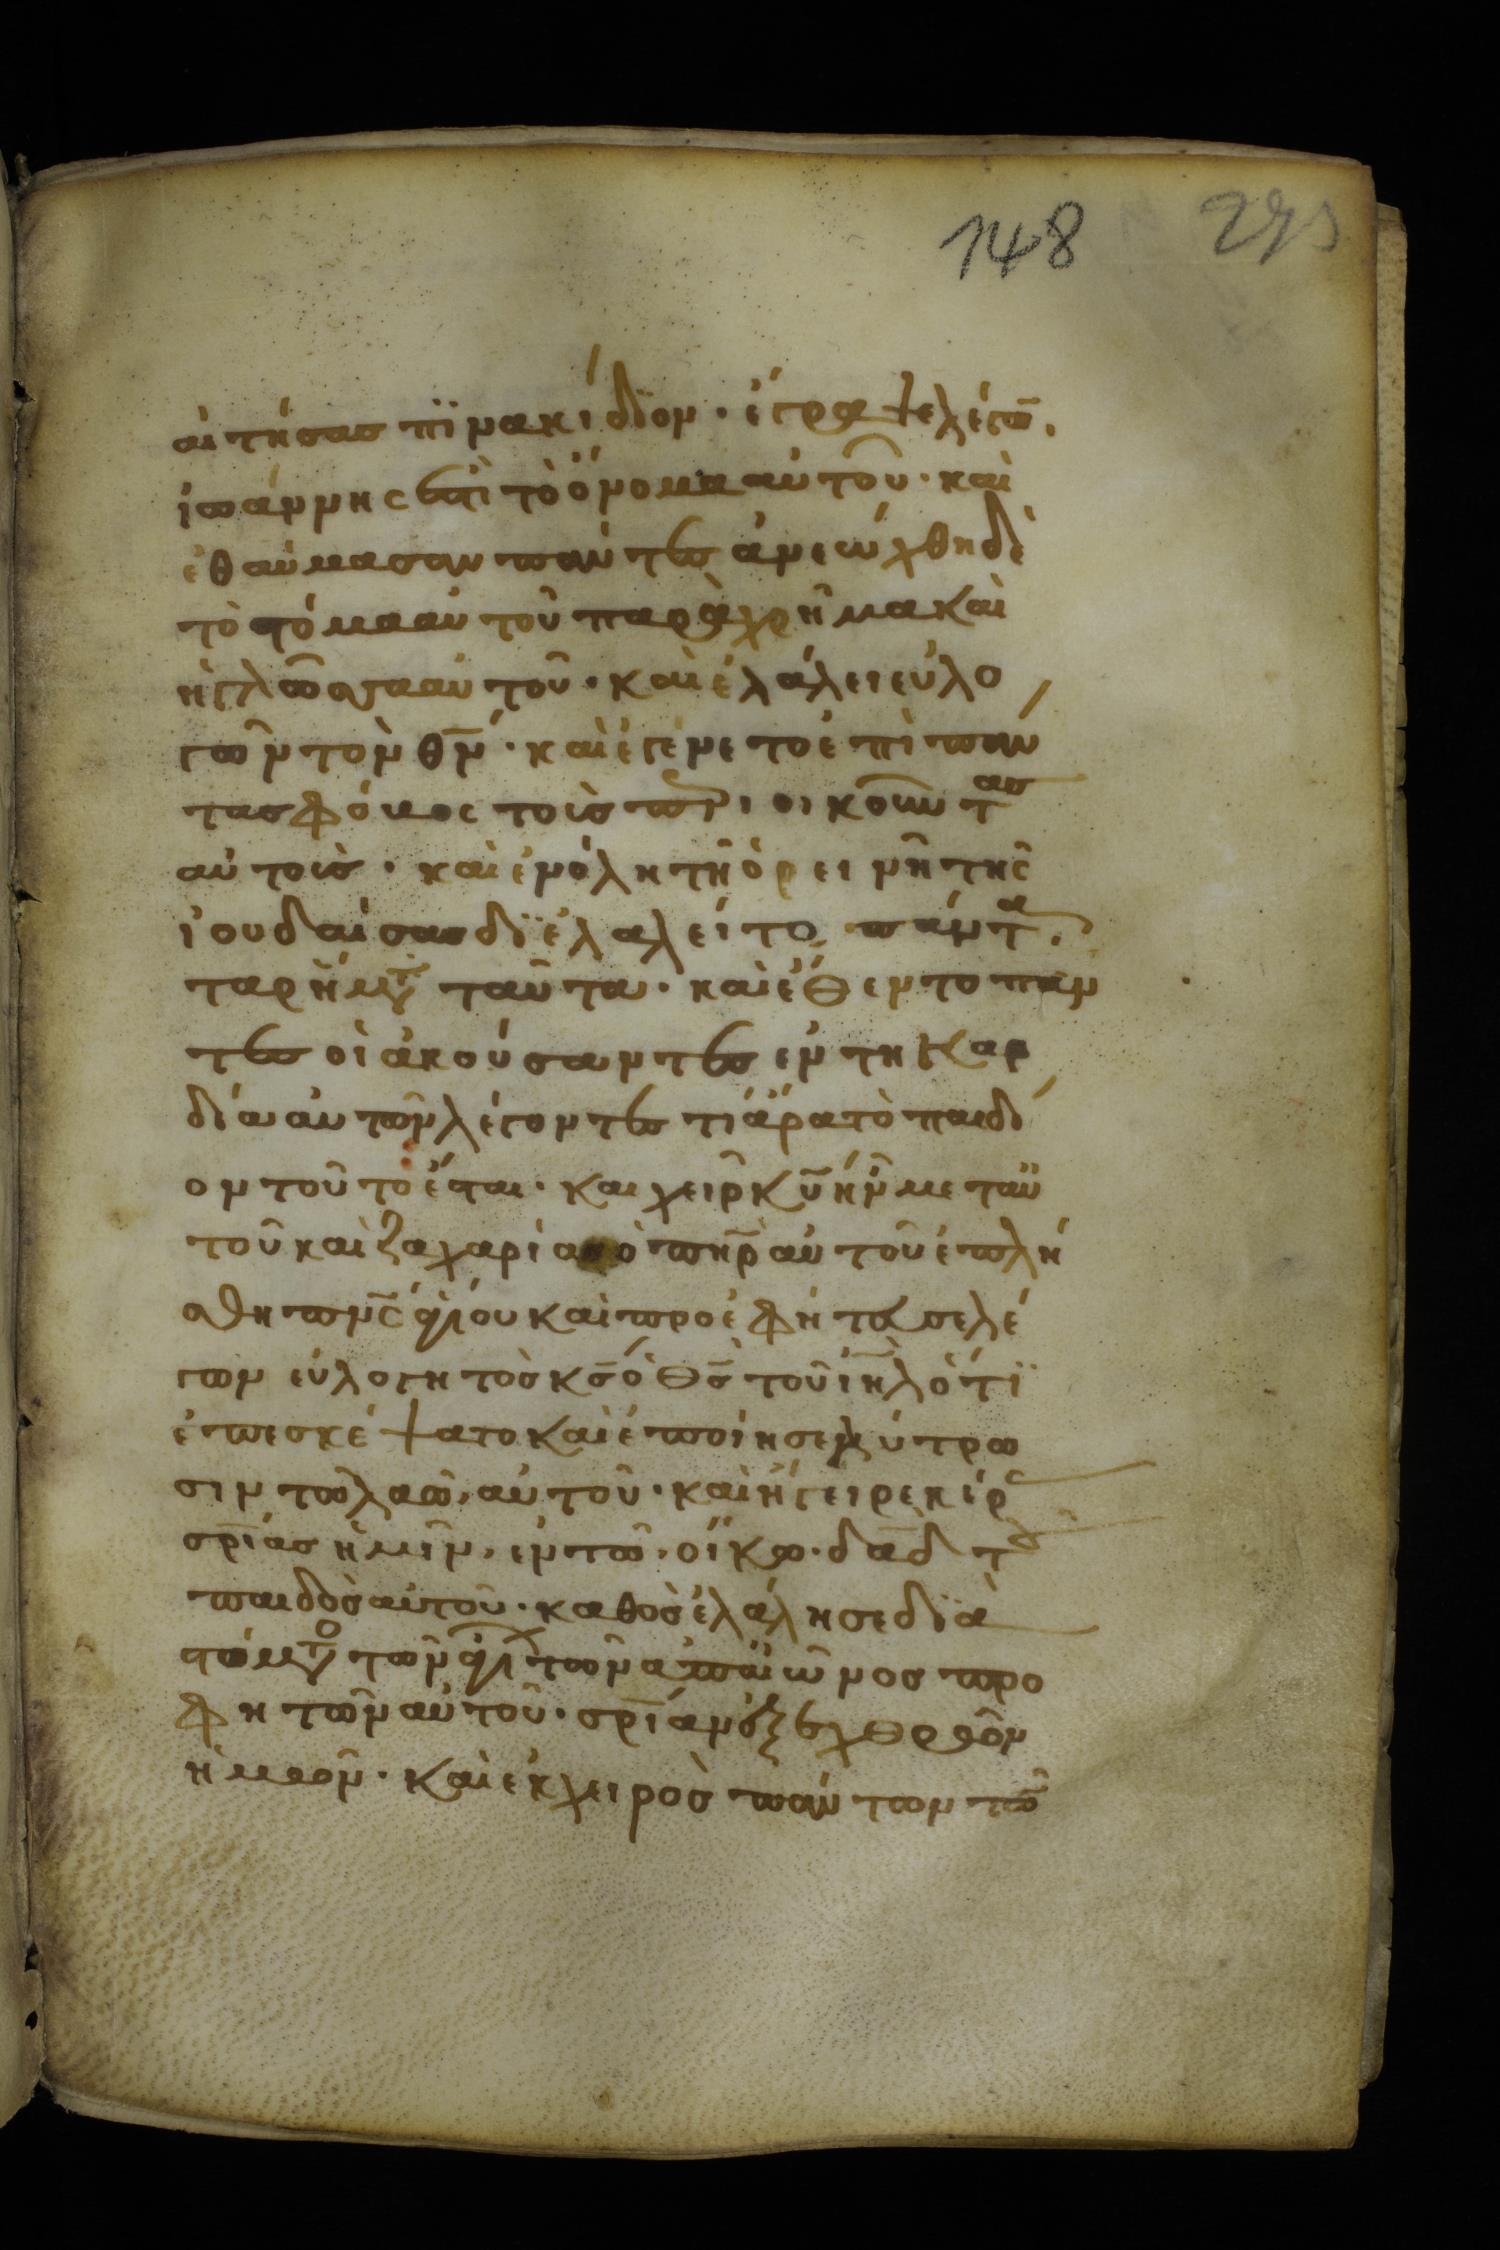 148
αἰτήσας πϊνακίδϊον · ἔγραψε λέγω̅ν ·
ἰωάννης ἐστὶ τὸ ὄνομα αὐτοῦ · καὶ
ἐθαύμασαν πάντες ἀνεώχθη δὲ
τὸ στόμα αὐτοῦ παραχρῆμα καὶ
ἡ γλῶσσα αὐτοῦ · καὶ ἐλάλει εὐλο
γῶν τὸν θ̅ν · καὶ ἐγένετο ἐπὶ πάν
τας φόβος τοὺς περιοικοῦντας
αὐτοὺς · καὶ ἐν ὅλη τῆ ὀρεινῆ τῆς
ἰουδαίας διελαλεῖτο πάντα
τα ρήματα ταῦτα · καὶ ἔθεντο πάν
τες οἱ ἀκούσαντες ἐν τη καρ
δία αυτῶν λέγοντες τί ἄρα τὸ παιδί
ον τοῦτο ἔσται · και χεὶρ κ̅υ ἦν μετ αὐ
τοῦ καὶ ζαχαρίας ὁ π̅η̅ρ αὐτοῦ ἐπλή
σθη π̅ν̅ς ἁγίου καὶ προεφήτευσε λέ
γων εὐλογητὸς κ̅ς ὁ θ̅ς τοῦ ι̅η̅λ ὅτϊ
ἐπεσκέψατο καὶ ἐποίησε λύτρω
σιν τῶ λαῶ, αὐτοῦ · καὶ ἤγειρε κέρας
σ̅ρ̅ίας ἡμῖν, ἐν τῶ, οἴκω · δ̅α̅δ τοῦ
παιδὸς αὐτοῦ · καθὸς ἐλάλησε δϊὰ
στόματος τῶν ἁγίων τῶν ἀπ αἰῶνος προ
φητῶν αὐτοῦ · σ̅ρ̅ίαν ἐξ ἐχθρῶν
ἡμῶν · καὶ ἐκ χειρὸς πάντων τῶν